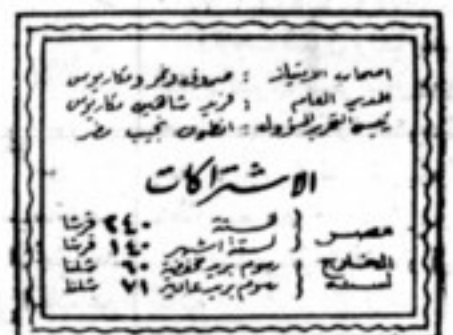 اصحاب الامتياز : صروف ونمر ومكاريوس
المدير العام : فريد شاهين مكاريوس
رئيس التحرير المسؤول : انطون نجيب مطر
الاشتراكات
مصر ( لسنة ٢٤٠ قرشا
لستة اشهر ١٤٠ قرشا
الخارج لسنة ( رسوم بريد مخفض ٦٠ شلنا
رسوم بريد عادي ٧١ شلنا